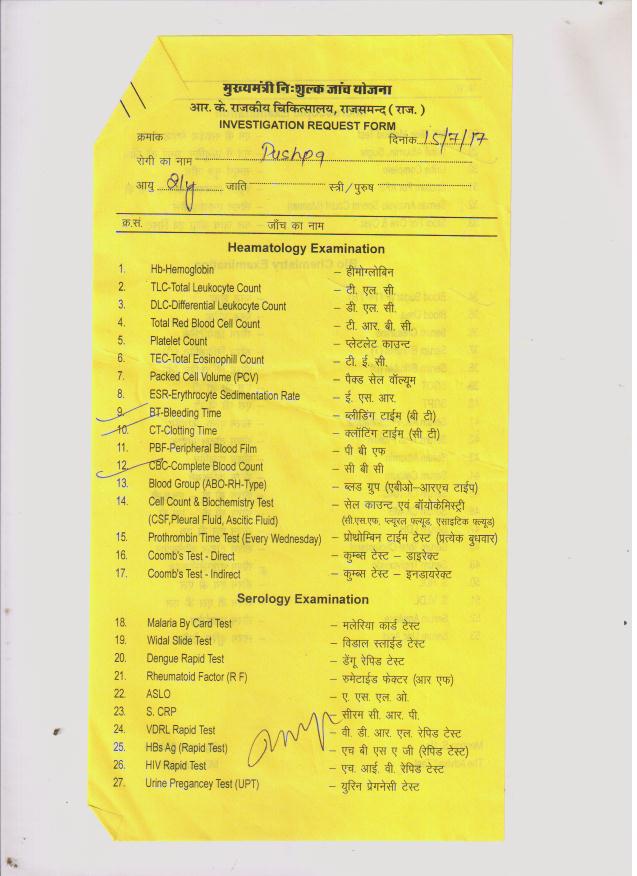 मुख्यमंत्री निःशुल्क जांच योजना
आर. के. राजकीय चिकित्सालय, राजसमन्द ( राज. )
INVESTIGATION REQUEST FORM
क्रमांक दिनांक 15/7/17
रोगी का नाम Pushpa
आयु जाति स्त्री/पुरुष
क्र.सं. जाँच का नाम
Heamatology Examination
1. Hb-Hemoglobin – हीमोग्लोबिन
2. TLC-Total Leukocyte Count – टी. एल. सी.
3. DLC-Differential Leukocyte Count – डी. एल. सी.
4. Total Red Blood Cell Count – टी. आर. बी. सी.
5. Platelet Count – प्लेटलेट काउन्ट
6. TEC-Total Eosinophill Count – टी. ई. सी.
7. Packed Cell Volume (PCV) – पैक्ड सेल वॉल्यूम
8. ESR-Erythrocyte Sedimentation Rate – ई. एस. आर.
9. BT-Bleeding Time – ब्लीडिंग टाईम (बी टी)
10. CT-Clotting Time – क्लॉटिंग टाईम (सी टी)
11. PBF-Peripheral Blood Film – पी बी एफ
12. CBC-Complete Blood Count – सी बी सी
13. Blood Group (ABO-RH-Type) – ब्लड ग्रुप (एबीओ-आरएच टाईप)
14. Cell Count & Biochemistry Test – सेल काउन्ट एवं बॉयोकेमिस्ट्री
(CSF,Pleural Fluid, Ascitic Fluid) (सी.एस.एफ, प्ल्यूरल फ्ल्यूड, एसाइटिक फ्ल्यूड)
15. Prothrombin Time Test (Every Wednesday) – प्रोथ्रोम्बिन टाईम टेस्ट (प्रत्येक बुधवार)
16. Coomb's Test - Direct – कुम्बस टेस्ट – डाइरेक्ट
17. Coomb's Test - Indirect – कुम्बस टेस्ट – इनडायरेक्ट
Serology Examination
18. Malaria By Card Test – मलेरिया कार्ड टेस्ट
19. Widal Slide Test – विडाल स्लाईड टेस्ट
20. Dengue Rapid Test – डेंगू रेपिड टेस्ट
21. Rheumatoid Factor (R F) – रुमेटाईड फेक्टर (आर एफ)
22. ASLO – ए. एस. एल. ओ.
23. S. CRP – सीरम सी. आर. पी.
24. VDRL Rapid Test – वी. डी. आर. एल. रेपिड टेस्ट
25. HBs Ag (Rapid Test) – एच बी एस ए जी (रेपिड टेस्ट)
26. HIV Rapid Test – एच. आई. वी. रेपिड टेस्ट
27. Urine Pregancey Test (UPT) – युरिन प्रेगनेसी टेस्ट